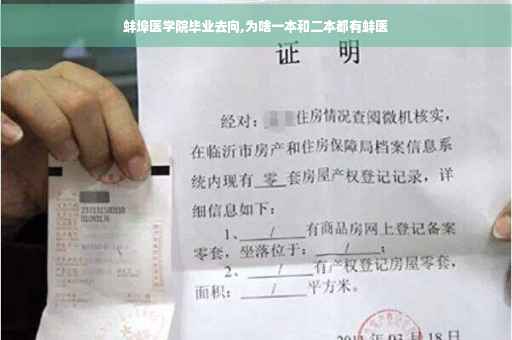 蚌埠医学院毕业去向,为啥一本和二本都有蚌医
证 明
经对:住房情况查阅微机核实,
在临沂市房产和住房保障局档案信息系
统内现有 零 套房屋产权登记记录,详
细信息如下:
1、 / 有商品房网上登记备案
零套,坐落位于: / ;
2、 / 有产权登记房屋零套,
面积: / 平方米。
03月18日